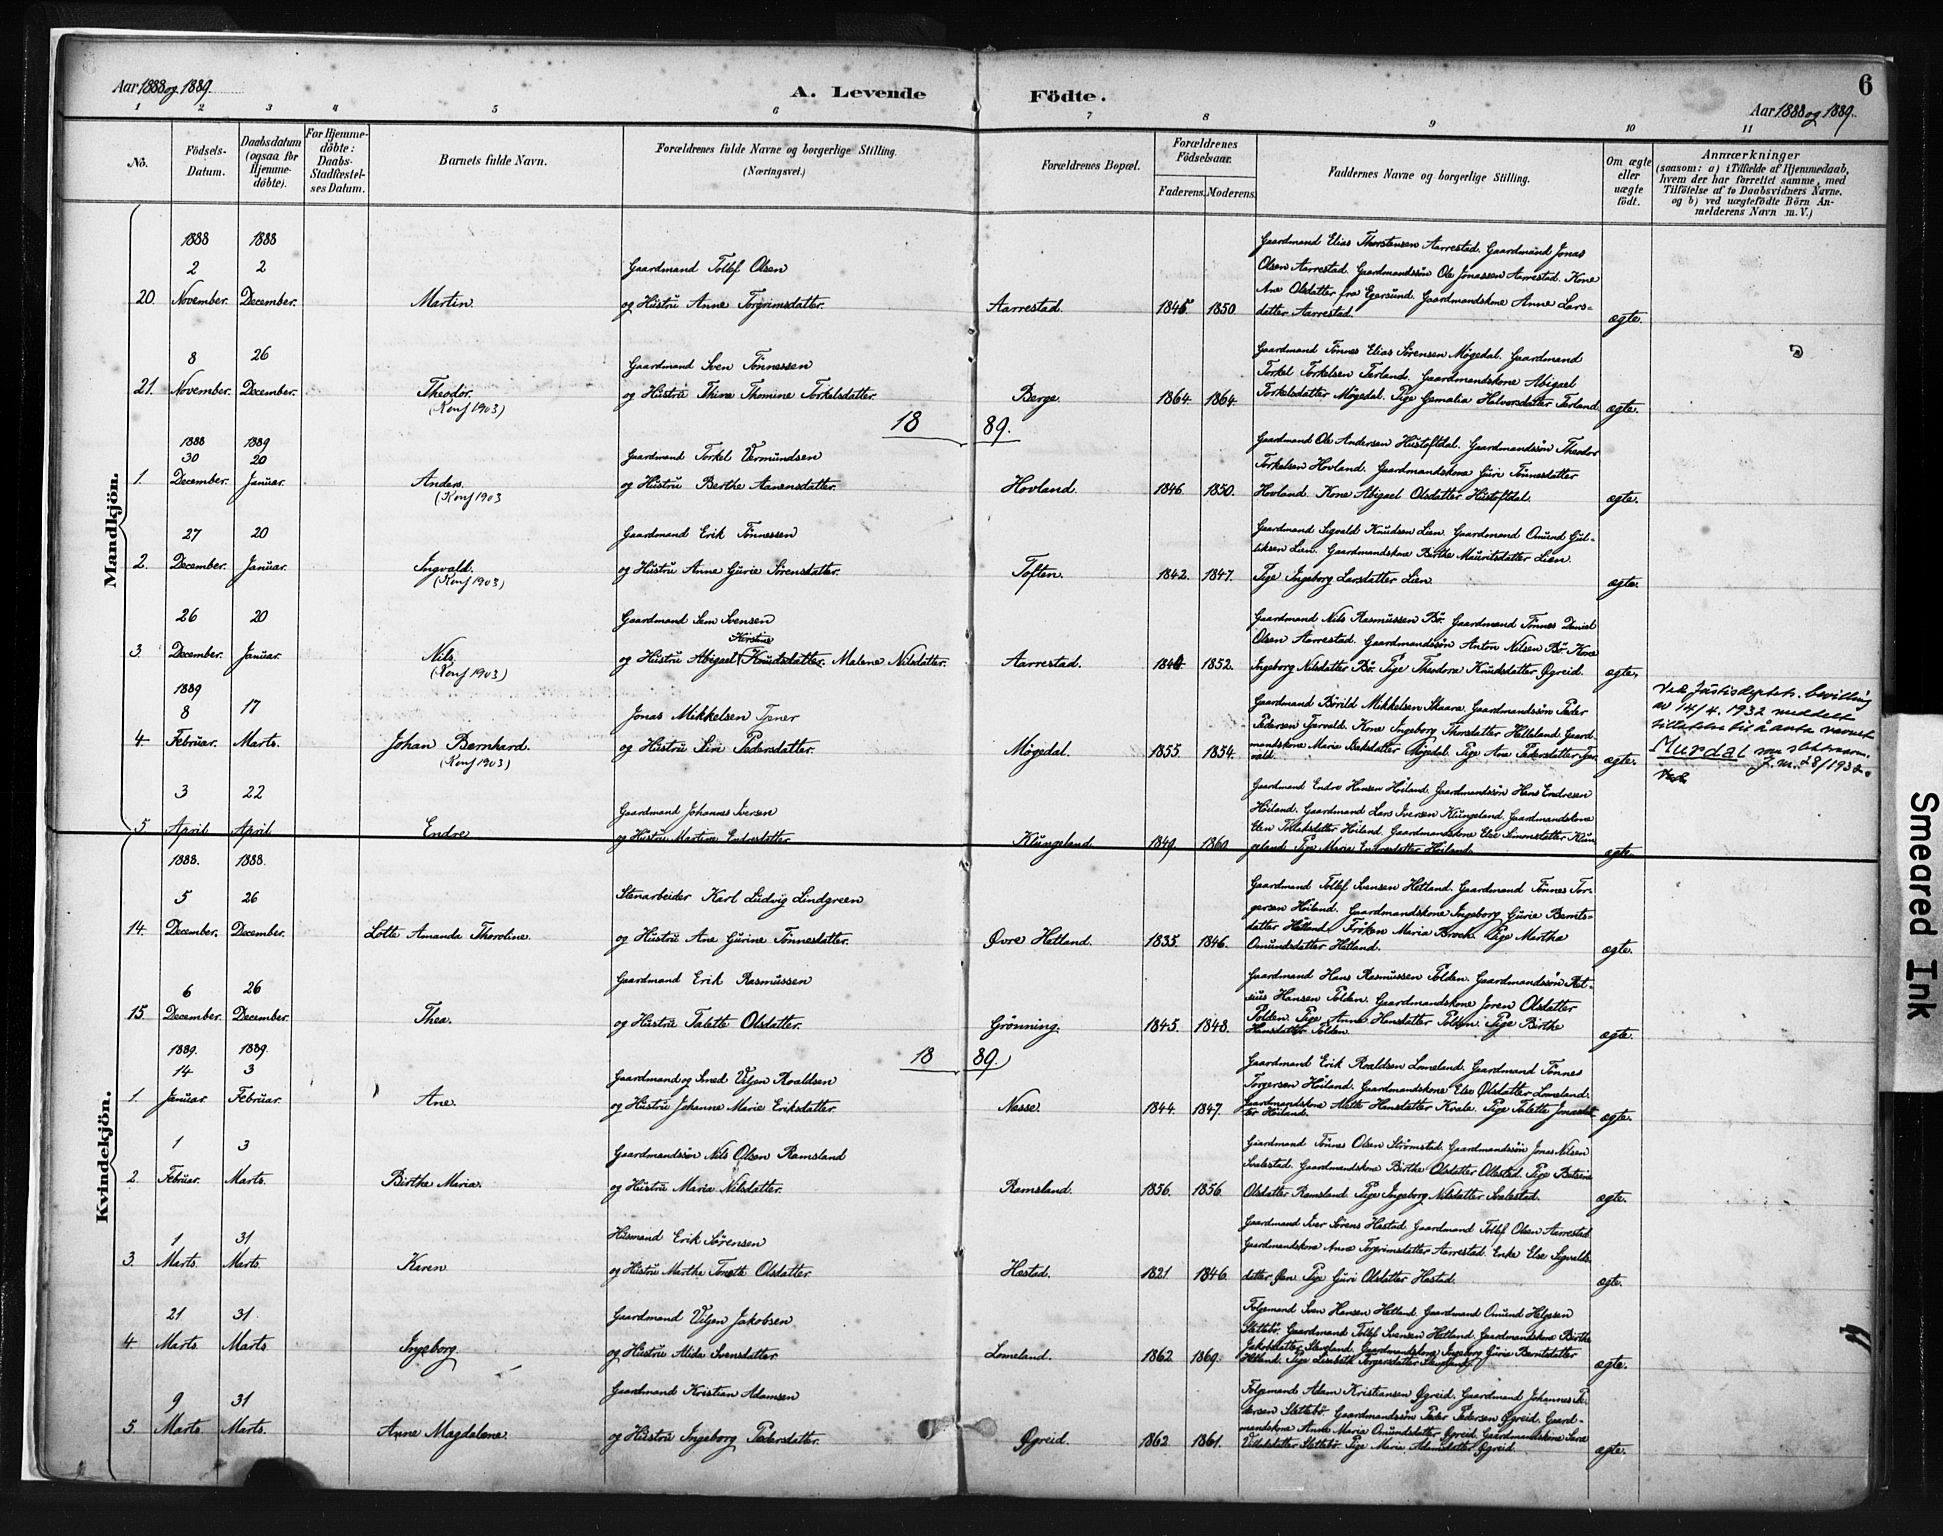 6
Aar 1888 og 1889.
A. Levende Födte.
Aar 1888 og 1889.
1 2 3 4 5 6 7 8 9 10 11
No.
Födsels-
Datum.
Daabsdatum
(ogsaa for
Hjemme-
döbte).
For Hjemme-
döbte:
Daabs-
Stadfæstel-
ses Datum.
Barnets fulde Navn.
Forældrenes fulde Navne og borgerlige Stilling.
(Næringsvei.)
Forældrenes Bopæl.
Forældrenes
Födselsaar.
Faderens. Moderens.
Faddernes Navne og borgerlige Stilling.
Om ægte
eller
uægte
födt.
Anmærkninger
(saasom: a) i Tilfælde af Hjemmedaab,
hvem der har forrettet samme, med
Tilföielse af to Daabsvidners Navne,
og b) ved uægtefödte Börn An-
melderens Navn m. V.)
Mandkjön.
1888 1888
2 2
20. November. December.
Martin.
Gaardmand Tollef Olsen
og Hustru Anne Torgrimsdatter.
Aarrestad.
1845 1850
Gaardmand Elias Thorstensen Aarrestad. Gaardmand Jonas
Olsen Aarrestad. Gaardmandssön Ole Jonassen Aarrestad. Kone
Ane Olsdatter fra Egersund. Gaardmandskone Anne Lars-
datter Aarrestad.
ægte.
8 26
21. November. December.
Theodor.
(Konf 1903)
Gaardmand Sven Tönnessen
og Hustru Thine Thomine Torkelsdatter.
Berge.
1864. 1864.
Gaardmand Tönnes Elias Sörensen Møgedal. Gaardmand
Torkel Torkelsen Terland. Gaardmandskone Abigael
Torkelsdatter Mögedal. Pige Gemalia Halvorsdatter Terland.
ægte.
1889.
1888 1889
30 20
1. December. Januar.
Anders.
(Konf 1903
Gaardmand Torkel Vermundsen
og Hustru Berthe Aanensdatter.
Hovland.
1846 1850.
Gaardmand Ole Andersen Hustoftdal. Gaardmandssön Theodor
Torkelsen Hovland. Gaardmandskone Guri Tönnesdatter
Hovland. Kone Abigael Olsdatter Hustoftdal.
ægte.
27 20
2. December. Januar.
Ingvald.
(Konf 1903)
Gaardmand Erik Tönnessen
og Hustru Anne Gurie Sörensdatter.
Toften.
1842. 1847.
Gaardmand Sigvald Knudsen Lien. Gaardmand Omund Gul-
liksen Lien. Gaardmandskone Birthe Mauritsdatter Lien.
Pige Ingeborg Larsdatter Lien.
ægte.
26 20
3. December. Januar.
Nils.
(Konf 1903)
Gaardmand Sem Svensen
Kirstine
og Hustru Abigael Knudsdatter. Malene Nilsdatter.
Aarrestad.
1852.
Gaardmand Nils Rasmussen Bö. Gaardmand Tönnes Daniel
Olsen Aarrestad. Gaardmandssön Anton Nilsen Bö. Kone
Ingeborg Nilsdatter Bö. Pige Theodora Knudsdatter Øgreid.
ægte.
1889
8 17
4. Februar. Marts.
Johan Bernhard.
(Konf 1903)
Jonas Mikkelsen Tjener
og Hustru Siri Pedersdatter.
Møgedal.
1855. 1854.
Gaardmand Börild Mikkelsen Skaara. Gaardmandssön Peder
Pedersen Tjorvald. Kone Ingeborg Thorsdatter Helleland. Gaard-
mandskone Marie Møgedal. Pige Ane Pedersdatter Tjor-
vald.
ægte.
Ved Justisdeptets. bevilling
av 14/4. 1932 meddelt
tillatelse til å anta navnet
Murdal som slektsnavn.
J. nr. 28/1932.
3 22
5 April April
Endre
Gaardmand Johannes Iversen
og Hustru Martine Endresdatter
Klungeland.
1849. 1860.
Gaardmand Endre Hansen Höiland. Gaardmandssön Hans Endresen
Höiland. Gaardmand Lars Iversen Klungeland. Gaardmandskone
Elen Tollaksdatter Höiland. Gaardmandskone Else Simonsdatter Klun-
geland. Pige Marie Endresdatter Höiland.
ægte.
Kvindekjön.
1888. 1888.
5 26
14. December. December.
Lotte Amanda Thoroline.
Stenarbeider Karl Ludvig Lindgreen
og Hustru Ane Gurine Tönnesdatter.
Øvre Hetland.
1835. 1846.
Gaardmand Tollef Svensen Hetland. Gaardmand Tönnes Tor-
gersen Höiland. Gaardmandskone Ingeborg Gurie Bernts-
datter Hetland. Fröken Maria Brock. Pige Martha
Omundsdatter Hetland.
ægte.
6 26
15. December. December.
Thea.
Gaardmand Erik Rasmussen
og Hustru Talette Olsdatter.
Grönning.
1845. 1848.
Gaardmand Hans Rasmussen Polden. Gaardmandssön
Hansen Polden. Gaardmandskone Joren Olsdatter
Polden. Pige Anne Hansdatter Polden. Pige Birthe
Hansdatter Polden.
ægte.
1889.
1889. 1889.
14 3
1. Januar. Februar.
Ane.
Gaardmand og Smed Viljen Roaldsen
og Hustru Johanne Marie Eriksdatter.
Nesse.
1844. 1847.
Gaardmand Erik Roaldsen Lomeland. Gaardmand Tönnes
Torgersen Höiland. Gaardmandskone Else Olsdatter Lomeland.
Gaardmandskone Mette Hansdatter Kvale. Pige Talette Jonasdat-
ter Höiland.
ægte.
1 3
2. Februar. Marts.
Birthe Maria.
Gaardmandssön Nils Olsen Ramsland
og Hustru Maria Nilsdatter.
Ramsland.
1856. 1856.
Gaardmand Tönnes Olsen Strömstad. Gaardmandssön Jonas Nilsen
Svalestad. Gaardmandskone Birthe Olsdatter Ollestad. Pige Batsine
Olsdatter Ramsland. Pige Ingeborg Nilsdatter Svalestad.
ægte.
1 31
3. Marts. Marts.
Karen
Husmand Erik Sörensen
og Hustru Marthe Tonette Olsdatter
Hestad.
1821 1846.
Gaardmand Iver Sörens Hestad. Gaardmand Tollef Olsen Aarrestad.
Gaardmandskone Anne Torgrimsdatter Aarrestad. Enke Else Sigvalds-
datter Øen. Pige Guri Olsdatter Hestad.
ægte.
21 31.
4. Marts. Marts.
Ingeborg
Gaardmand Viljen Jakobsen
og Hustru Alida Svensdatter.
Lomeland.
1862 1869.
Folgemand Sven Hansen Hetland. Gaardmand Omund Helgesen
Slettebö. Gaardmand Tollef Svensen Hetland. Gaardmandskone Birthe
Jakobsdatter Skogland. Gaardmandskone Ingeborg Gurie Berntsdatter
Hetland. Pige Lisebeth Torgersdatter
ægte.
9 31
5. Marts. Marts.
Anne Magdalene.
Gaardmand Kristian Adamsen
og Hustru Ingeborg Pedersdatter.
Øgreid.
1862. 1861.
Folgemand Adam Kristiansen Øgreid. Gaardmand Johannes Pe-
dersen Slettebö. Gaardmandssön Peder Pedersen Øgreid. Gaard-
mandskone Anne Marie Omundsdatter Øgreid. Gaardmandskone Sara
Villadsdatter Slettebö. Pige Marie Adamsdatter Øgreid.
ægte.
Smeared Ink